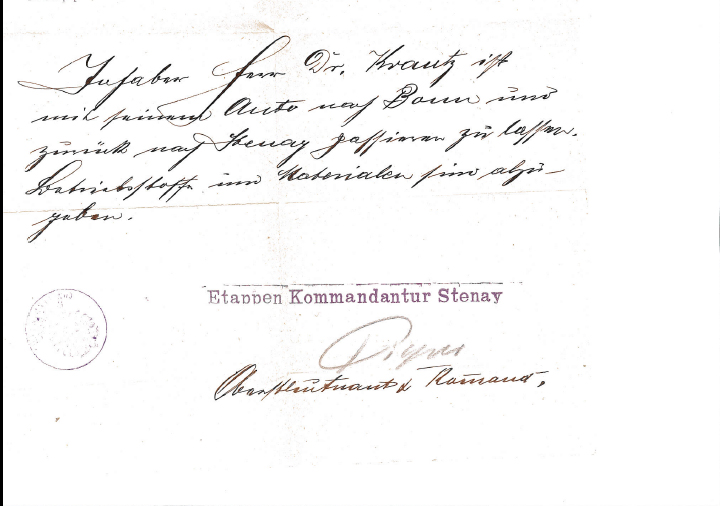 Inhaber Herr Dr. Krantz ist
mit seinem Auto nach Bonn und
zurück nach Stenay passieren zu lassen.
Betriebsstoffe und Materialien sind abzu-
geben.
Etappen Kommandantur Stenay
Oberstleutnant & Komand.